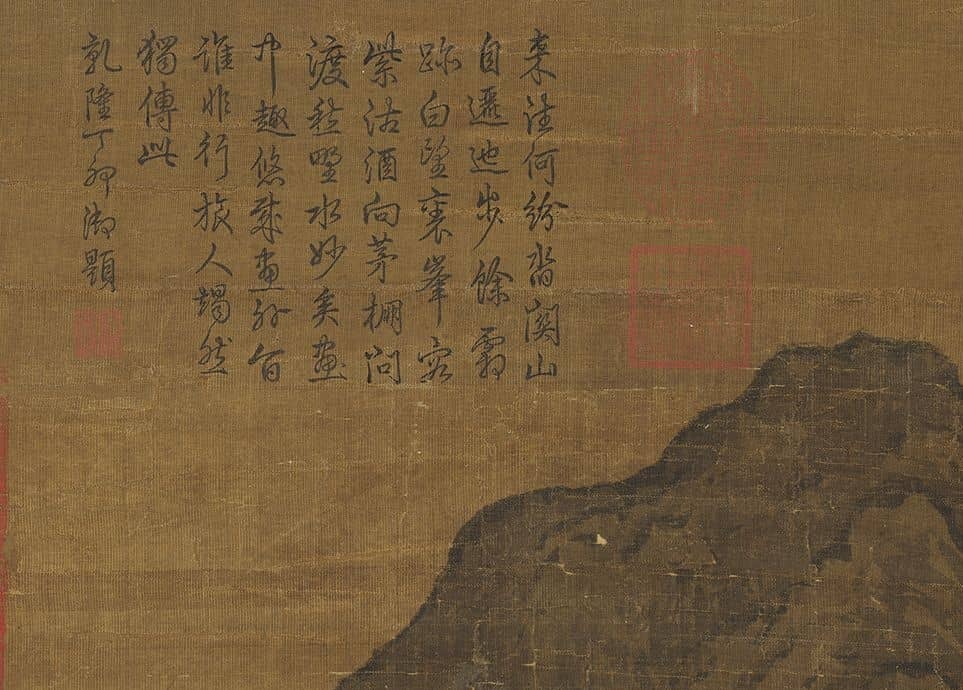 來往何紛沓關山
自邐迆步餘霜
跡白望裏峯容
紫沽酒向茅棚問
渡愁野水妙矣畫
中趣悠哉畫外旨
誰非行旅人然
獨傳此
乾隆丁卯御題